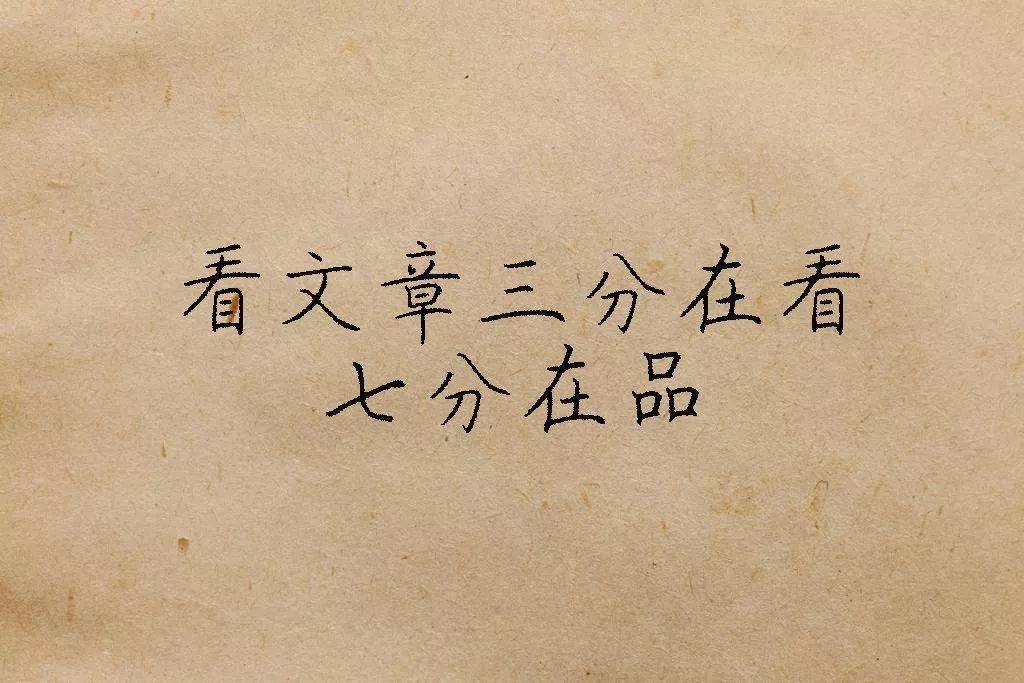 看文章三分在看
七分在品